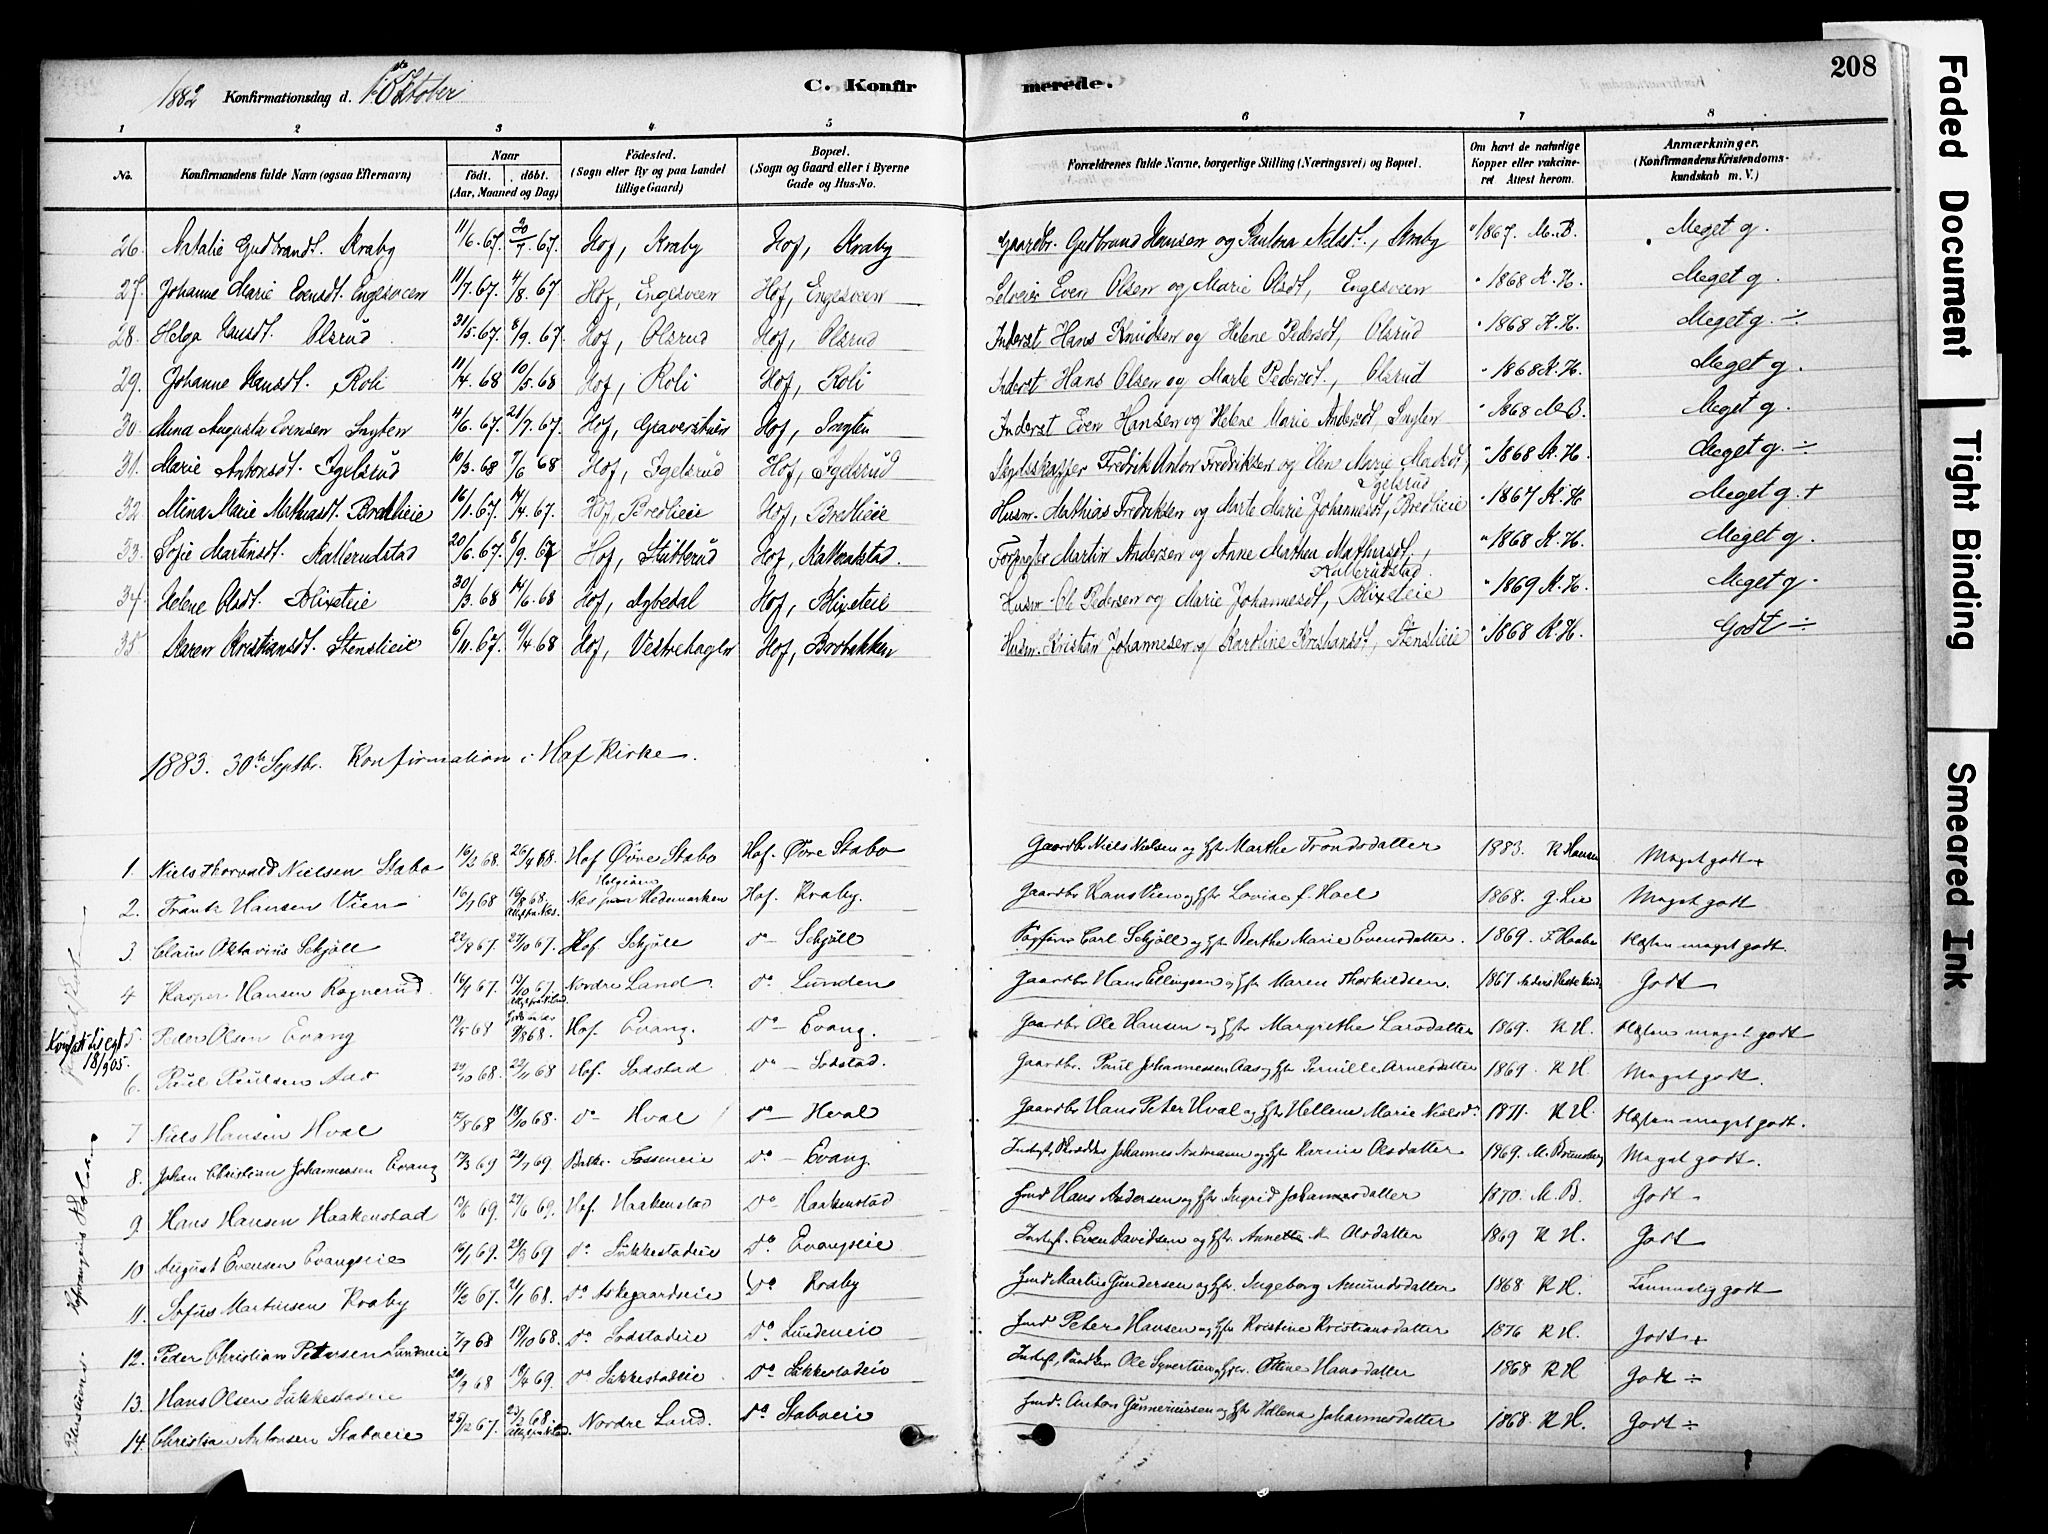 208
1882 Konfirmationsdag d. 1ste Oktober C. Konfirmerede.
1 2 3 4 5 6 7 8
No. Konfirmandens fulde Navn (ogsaa Efternavn) Naar født. døbt. (Aar, Maaned og Dag) Fødested. (Sogn eller By og paa Landet tillige Gaard) Bopæl. (Sogn og Gaard eller i Byerne Gade og Hus-No. Forældrenes fulde Navne, borgerlige Stilling (Næringsvei) og Bopæl. Om havt de naturlige Kopper eller vakcineret. Attest herom. Anmærkninger. (Konfirmandens Kristendomskundskab m. V.)
26. Natalie Gudbrandt. Kraby 11/6.67. 30/7.67. Hof, Kraby Hof, Kraby Gaardbr. Gudbrand Hansen og Paulina Nilsdt., Kraby 1867. M.B. Meget g.
27. Johanne Marie Evensdt. Engelsveen 11/7.67. 4/8.67 Hof, Engelsveen Hof, Engelsveen Selveier Even Olsen og Marie Olsdt, Engelsveen 1868 K.H. Meget g.
28. Helga Hansdt. Olsrud 31/5.67. 8/9.67. Hof, Olsrud Hof, Olsrud Inderst Hans Knudsen og Helene Pedersdt, Olsrud 1868 K.H. Meget g. ÷
29. Johanne Hansdt. Roli 11/4.68 10/5.68 Hof, Roli Hof, Roli Inderst Hans Olsen og Marte Pedersdt., Olsrud 1868 K.H. Meget g.
30. Mina Augusta Evensen Sngten 4/6.67. 21/7.67. Hof, Graverstuen Hof, Sngten Inderst Even Hansen og Helene Marie Andersdt, Sngten 1868 M.B. Meget g.
31. Marie Antonsdt. Egelsrud 10/3.68 7/6 68 Hof, Egelsrud Hof, Egelsrud Skydsskaffer Fredrik Anton Fredriksen og Elen Marie Madsdt, Egelsrud 1868 K.H. Meget g. ÷
32. Mina Marie Mathiasdt. Bredlieie 16/1.67. 14/4.67. Hof, Bredlieie Hof, Bredlieie Husm. Mathias Fredriksen og Marte Marie Johannesdt, Bredlieie 1867 K.H. Meget g. +
33. Sofie Martinsdt. Kallerudstad 20/6.67. 8/9.67 Hof, Stubberud Hof, Kallerudstad. Forpagter Martin Andersen og Anne Marthea Mathiasdt., Kallerudstad. 1868 K.H. Meget g.
34. Helene Olsdt. Blixeteie 30/3.68 14/6.68 Hof, Aybedal Hof, Blixeteie Husm. Ole Pedersen og Marie Johannesdt, Blixeteie 1869 K.H. Meget g.
35. Karen Kristiansdt. Stenslieie 6/11.67. 9/4 68 Hof, Vestrehagen Hof, Borbakken Husm. Kristian Johannesen og Karoline Kristiansdt, Stenslieie 1868 K.H. Godt ÷
1883. 30te Septbr. Konfirmation i Hof Kirke.
1. Niels Thorvald Nielsen Stabo 16/2 68. 26/4 68. Hof Øvre Stabo Hof. Øvre Stabo Gaardbr Niels Nielsen og Hst. Marthe Trondsdatter 1883. K Hansen Meget godt +
2. Frants Hansen Vien 16/1 68 16/8 68. Nes paa Hedemarken Hof. Kraby. Gaardbr Hans Vien og Hst Lovise f. Hoel 1868. G. Lie Meget godt
3 Claus Oktavius Schjöll 22/8 67. 27/10 67. Hof Schjöll do Schjöll Carl Schjöll og Hst Berthe Marie Evensdatter. 1869. F. Raabe Næsten meget godt.
4 Kasper Hansen Rognerud 16/9 67. 13/10 67. Nordre Land do Lunden Gaardbr Hans Ellingsen og Hst Maren Thorkildsen. 1867 Godt
Konf. att. 18/9 05.
5. Peder Olsen Evang 19/5 68 9/8 68. Hof Evang. Do Evang. Gaardbr Ole Hansen og Hst Margrethe Larsdatter 1869. K H. Næsten meget godt
6. Paul Paulsen Aas 29/10 68. 22/11 68 Hof. Sodstad do Sodstad. Gaardbr. Paul Johannessen Aas og Hst Pernille Arnesdatter 1869. K H. Meget godt.
7 Niels Hansen Hval 12/8 68 18/10 68. do Hval do Hval Gaardbr Hans Peter Hval og Hst Hellene Marie Nielsd. 1871. K H. Næsten meget godt.
8. Johan Christian Johannessen Evang 12/3 69 29/7 69 Balke Fosseneie do Evang Johannes Andreassen og Hst Karine Olsdatter 1869. M. Meget godt.
9 Hans Hansen Haakenstad 13/6 69. 27/6 69. Hof. Haakenstad Do Haakenstad Hmd Hans Andersen og Hst Ingrid Johannesdatter 1870. M. B. Godt
10 August Evensen Evangseie 16/1 69. 28/3 69 do Sukkestadeie do Evangseie Indst. Even Davidsen og Hst. Annette Olsdatter 1869 K H. Godt
11. Sofus Martinsen Kraby 11/12 67. 21/1 68. do Askegaardseie do Kraby Hmd Martin Gundersen og Hst. Ingeborg Amundsdatter 1868 K H. Temmelig godt
12. Peder Christian Petersen Lundeneie 7/9 68 18/10 68. do Sodstadeie do Lundeneie Hmd Peter Hansen og Hst Kristine Kristiansdatter 1876 K H. Godt +
13. Hans Olsen Sukkestadeie 20/9 68 18/4 69. do Sukkestadeie do Sukkestadeie Indst, Ole Syvertsen og Hst. Ottine Hansdatter 1868 K H Godt ÷
14. Christian Antonsen Staboeie 26/12 67. 23/2 68 Nordre Land. do Staboeie Hmd. Anton Gunneriussen og Hst Hellena Johannesdatter 1868. K H. Godt ÷
Faded Document
Tight Binding
Smeared Ink